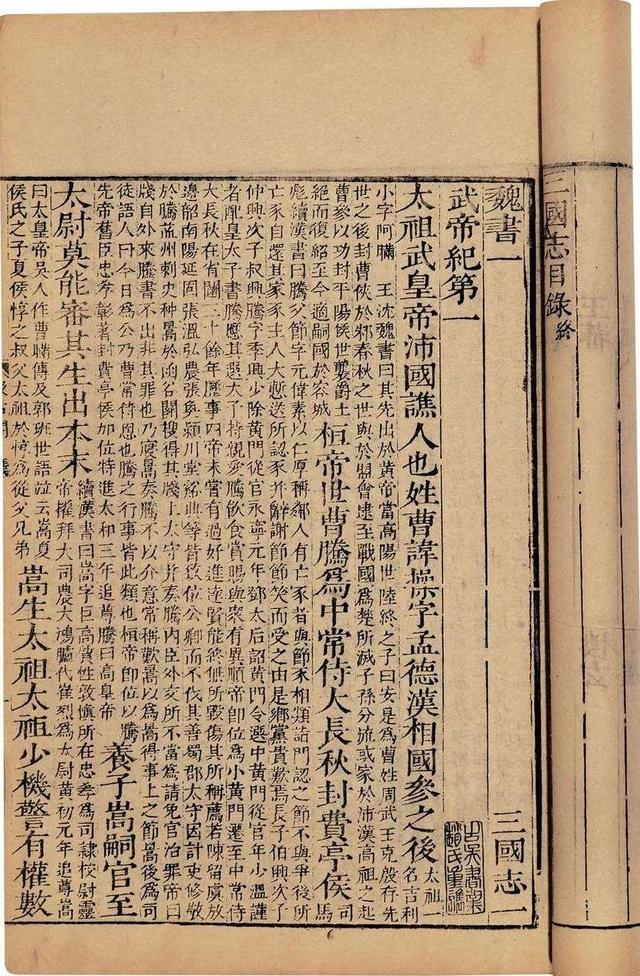 三國志目錄終
魏書一
三國志一
武帝紀第一
太祖武皇帝沛國譙人也姓曹諱操字孟德漢相國參之後
太祖一
名吉利
小字阿瞞 王沈魏書曰其先出於黃帝當高陽世陸終之子曰安是為曹姓周武王克殷存先
世之後封曹俠於邾春秋之世與於盟會逮至戰國為楚所滅子孫分流或家於沛漢高祖之起
曹參以功封平陽侯世襲爵土
絕而復紹至今適嗣國於容城
桓帝世曹騰為中常侍大長秋封費亭侯
司
馬
彪續漢書曰騰父節字元偉素以仁厚稱鄰人有亡豕者與節豕相類詣門認之節不與爭後所
亡豕自還其家豕主人大慙送所認豕并辭謝節節笑而受之由是鄉黨貴歎焉長子伯興次子
仲興次子叔興騰字季興少除黃門從官永寧元年鄧太后詔黃門令選中黃門從官年少溫謹
者配皇太子書騰應其選太子特親愛騰飲食賞賜與衆有異順帝即位為小黃門遷至中常侍
大長秋在省闥三十餘年歷事四帝未嘗有過好進達賢能終無所毀傷其所稱薦若陳留虞放
邊韶南陽延固張溫弘農張奐潁川堂谿典等皆致位公卿而不伐其善蜀郡太守因計吏修敬
於騰益州刺史种暠於函谷關搜得其牋上太守并奏騰內臣外交所不當為請免官治罪帝曰
牋自外來騰書不出非其罪也乃寢暠奏騰不以介意常稱歎暠以為暠得事上之節暠後為司
徒語人曰今日為公乃曹常侍恩也騰之行事皆此類也桓帝即位以騰
先帝舊臣忠孝彰著封費亭侯加位特進太和三年追尊騰曰高皇帝
養子嵩嗣官至
太尉莫能審其生出本末
續漢書曰嵩字巨高質性敦慎所在忠孝為司隸校尉靈
帝擢拜大司農大鴻臚代崔烈為太尉黃初元年追尊嵩
曰太皇帝吳人作曹瞞傳及郭班世語並云嵩夏
侯氏之子夏侯惇之叔父太祖於惇為從父兄弟
嵩生太祖太祖少機警有權數